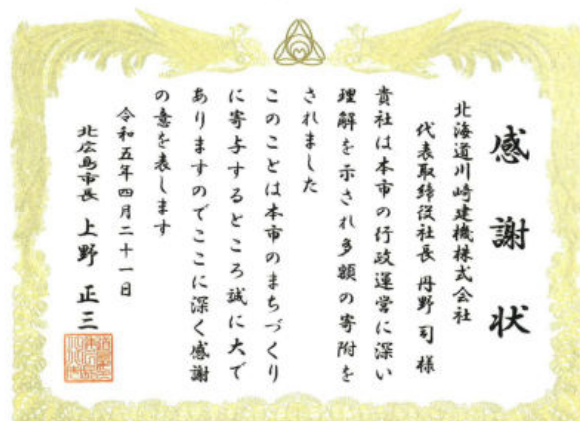 感謝状
北海道川崎建機株式会社
代表取締役社長 丹野司様
貴社は本市の行政運営に深い
理解を示され多額の寄附を
されました
このことは本市のまちづくり
に寄与するところ誠に大で
ありますのでここに深く感謝
の意を表します
令和五年四月二十一日
北広島市長 上野正三